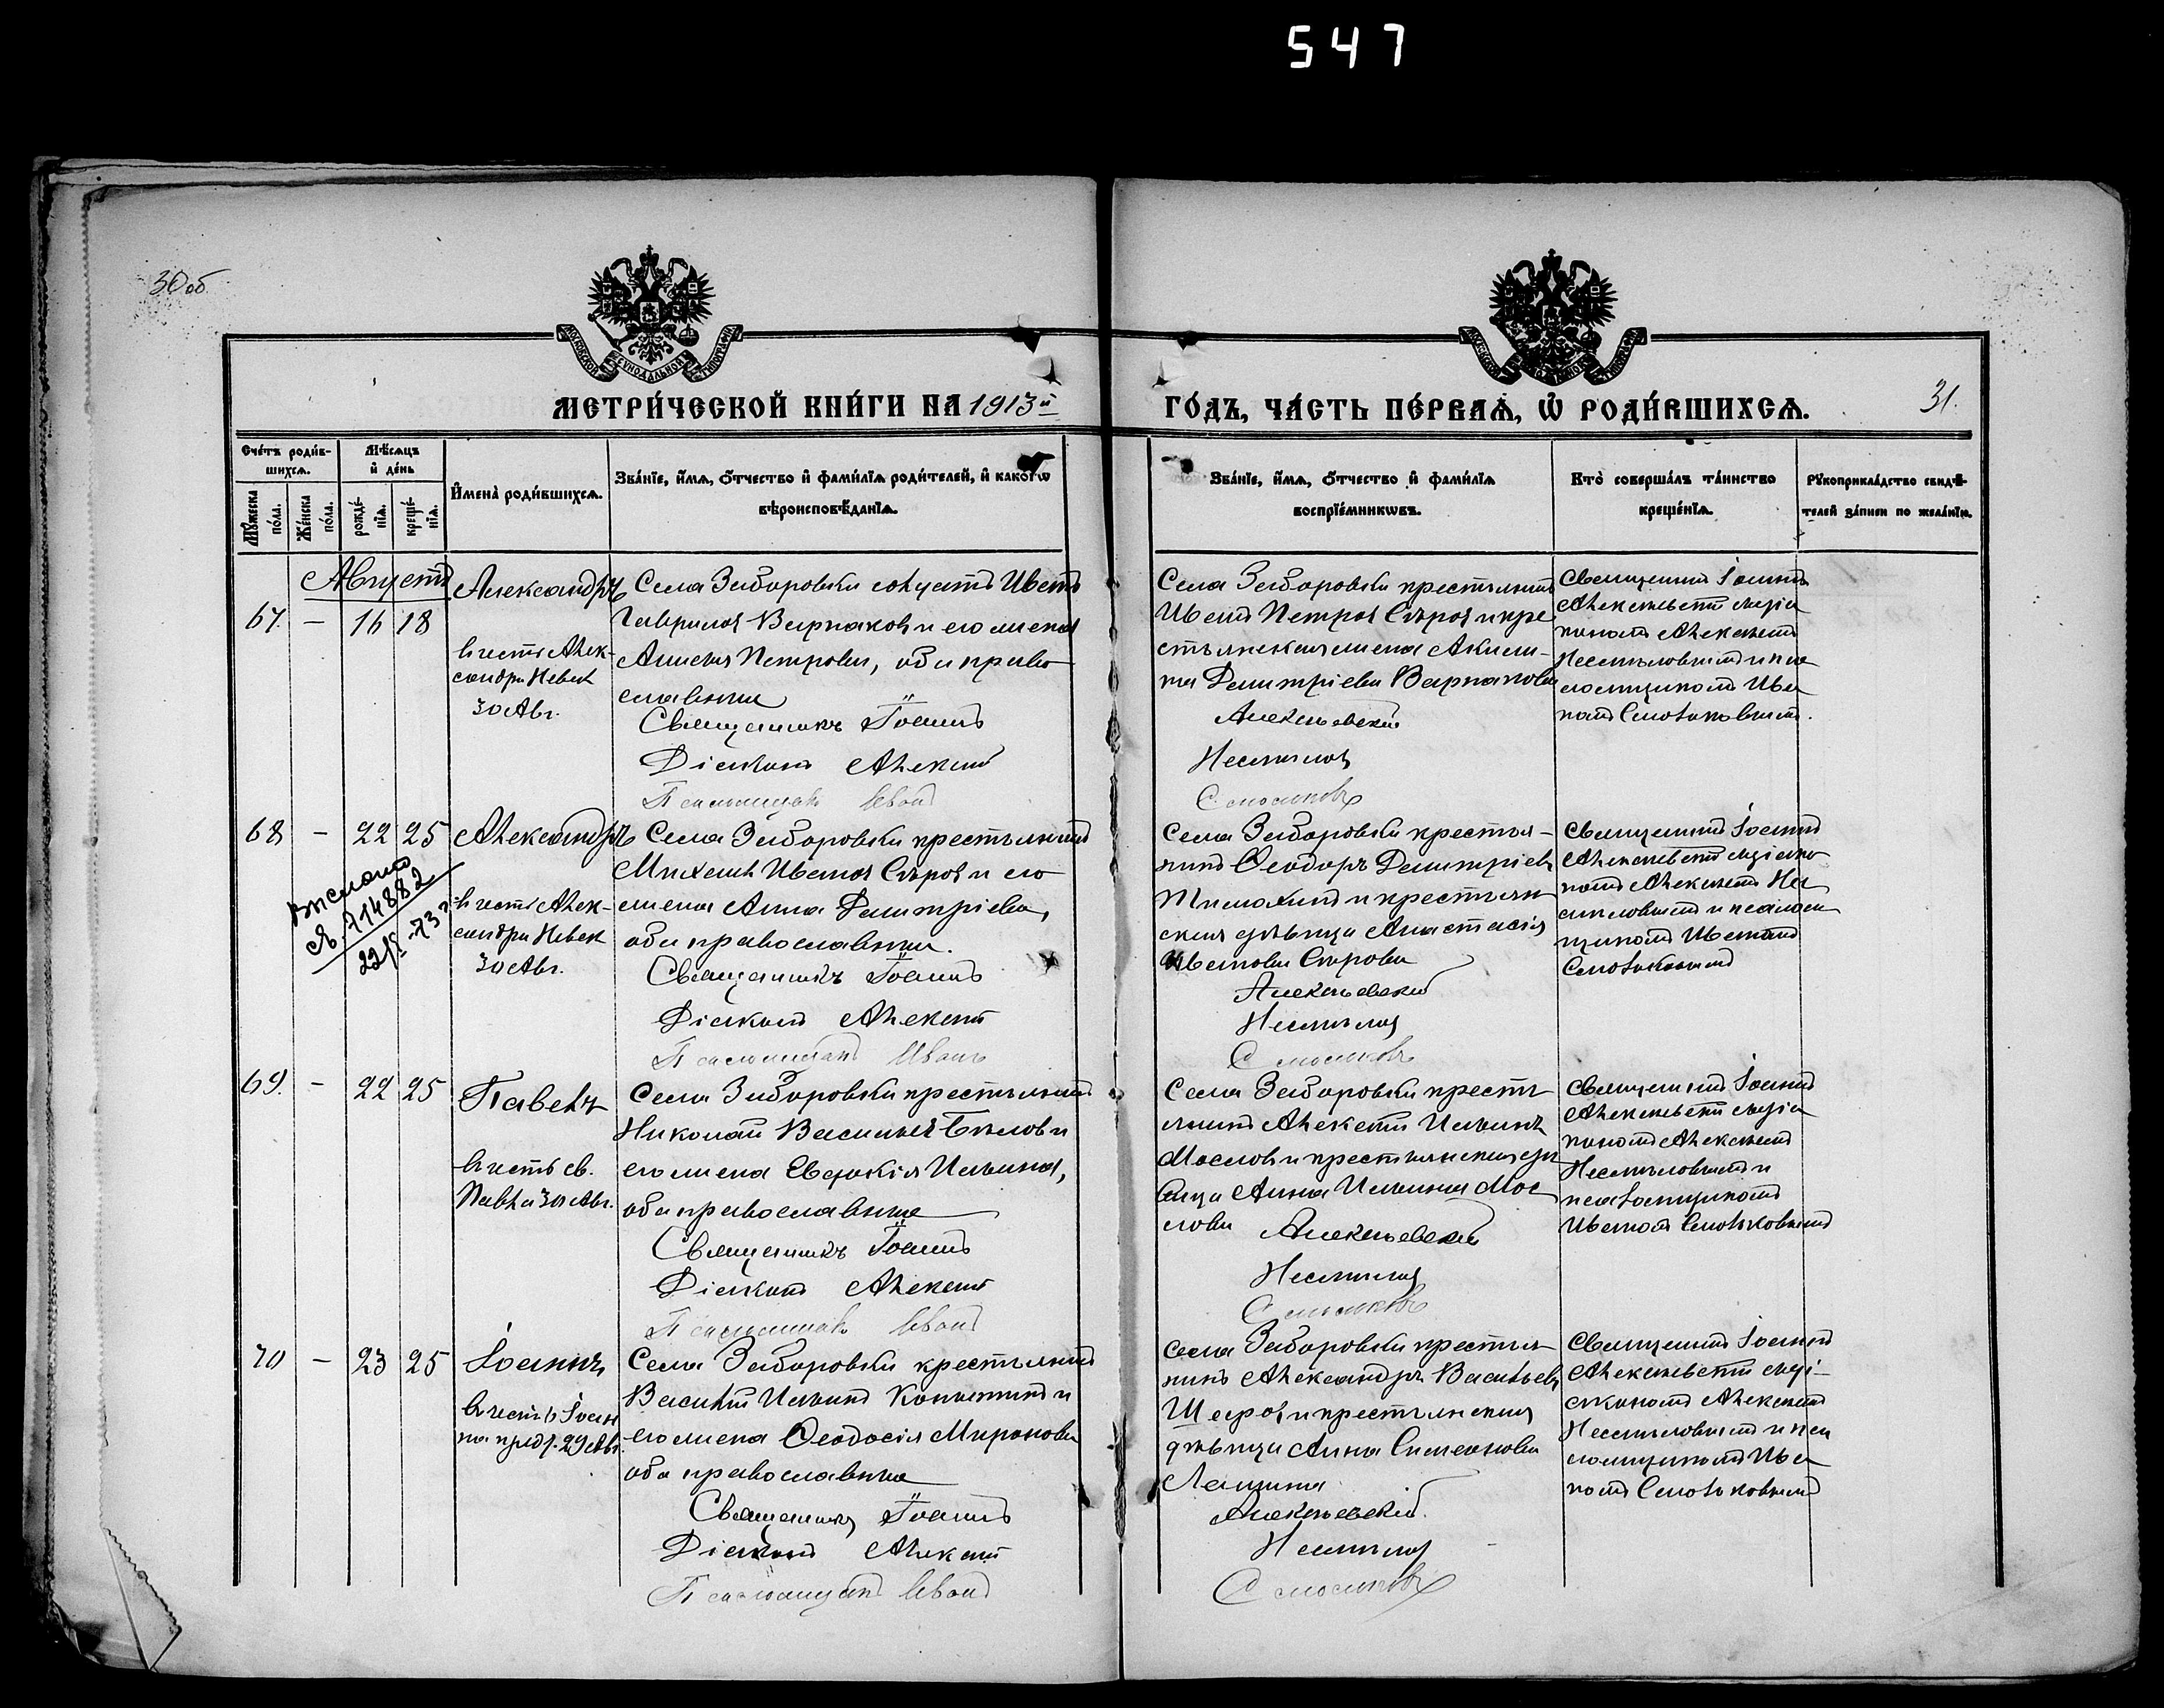 547
30 об.
МЕТРИЧЕСКОЙ КНИГИ НА 1913й
ГОДЪ, ЧАСТЬ ПЕРВАЯ, Ѡ РОДИВШИХСЯ.
31.
Счетъ родив-
шихся.
Мѣсяцъ
и день
Мужеска
пола.
Женска
пола.
рожде-
нія.
креще-
нія.
Имена родившихся.
Званіе, имя, отчество и фамилія родителей, и какогѡ
вѣроисповѣданія.
Званіе, имя, отчество и фамилія
воспріемникѡвъ.
Кто совершалъ таинство
крещенія.
Рукоприкладство свидѣ-
телей записи по желанію.
Августъ
67. – 16 18
Александръ
въ честь Алек-
сандра Невск
30 Авг.
Села Заборовки солдатъ Иванъ
Гавриловъ Варнаковъ и его жена
Петрова, оба право
славные
Священникъ Іоаннъ
Діаконъ Алексій
Псаломщикъ Иванъ
Села Заборовки крестьянинъ
Иванъ Петровъ Сѣровъ и кре
стьянская жена Акили-
на Димитріева Варнакова
Алексѣевскій
Несмѣловъ
Смолековъ
Священникъ Іоаннъ
Алексѣевскій съ діа
кономъ Алексѣемъ
Несмѣловымъ и пса
ломщикомъ Ива
номъ
68 – 22 25
Александръ
въ честь Алек-
сандра Невск
30 Авг.
114882
Села Заборовки крестьянинъ
Михаилъ Ивановъ Сѣровъ и его
жена Анна Димитріева,
оба православные.
Священникъ Іоаннъ
Діаконъ Алексій
Псаломщикъ Иванъ
Села Заборовки крестья-
нинъ Ѳеодоръ Димитріевъ
и крестьян
ская дѣвица Анастасія
Иванова Сѣрова
Алексѣевскій
Несмѣловъ
Священникъ Іоаннъ
Алексѣевскій съ діако
номъ Алексѣемъ Не
смѣловымъ и псалом
щикомъ Иваномъ
69. – 22 25
Павелъ
въ честь св.
Павла 30 Авг.
Села Заборовки крестьянинъ
Николай Васильевъ Бѣловъ и
его жена Евдокія Ильина,
оба православные
Священникъ Іоаннъ
Діаконъ Алексій
Псаломщикъ Иванъ
Села Заборовки кресть
янинъ Алексѣй Ильинъ
Масловъ и крестьянская дѣ
вица Анна Ильина Мас
лова
Алексѣевскій
Несмѣловъ
Священникъ Іоаннъ
Алексѣевскій съ діа
кономъ Алексѣемъ
Несмѣловымъ и
псаломщикомъ
Иваномъ
70 – 23 25
Іоаннъ
въ честь Іоан
на пред. 29 Авг.
Села Заборовки крестьянинъ
Василій Ильинъ и
его жена Ѳеодосія Миронова
оба православные
Священникъ Іоаннъ
Діаконъ Алексій
Псаломщикъ Иванъ
Села Заборовки крестья-
нинъ Александръ Васильевъ
и крестьянская
дѣвица Анна Симеонова
Алексѣевскій
Несмѣловъ
Священникъ Іоаннъ
Алексѣевскій съ ді-
акономъ Алексѣемъ
Несмѣловымъ и пса
ломщикомъ Ива
номъ